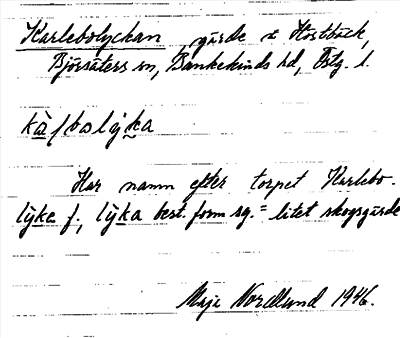 Karlebolyckan, gärde t Höstbäck,
Björsäters sn, Bankekinds hd, Östg. l.
Har namn efter torpet Karlebo.
lỳke f., lỳka best. form sg. = litet skogsgärde
Maja Nordlund 1946.